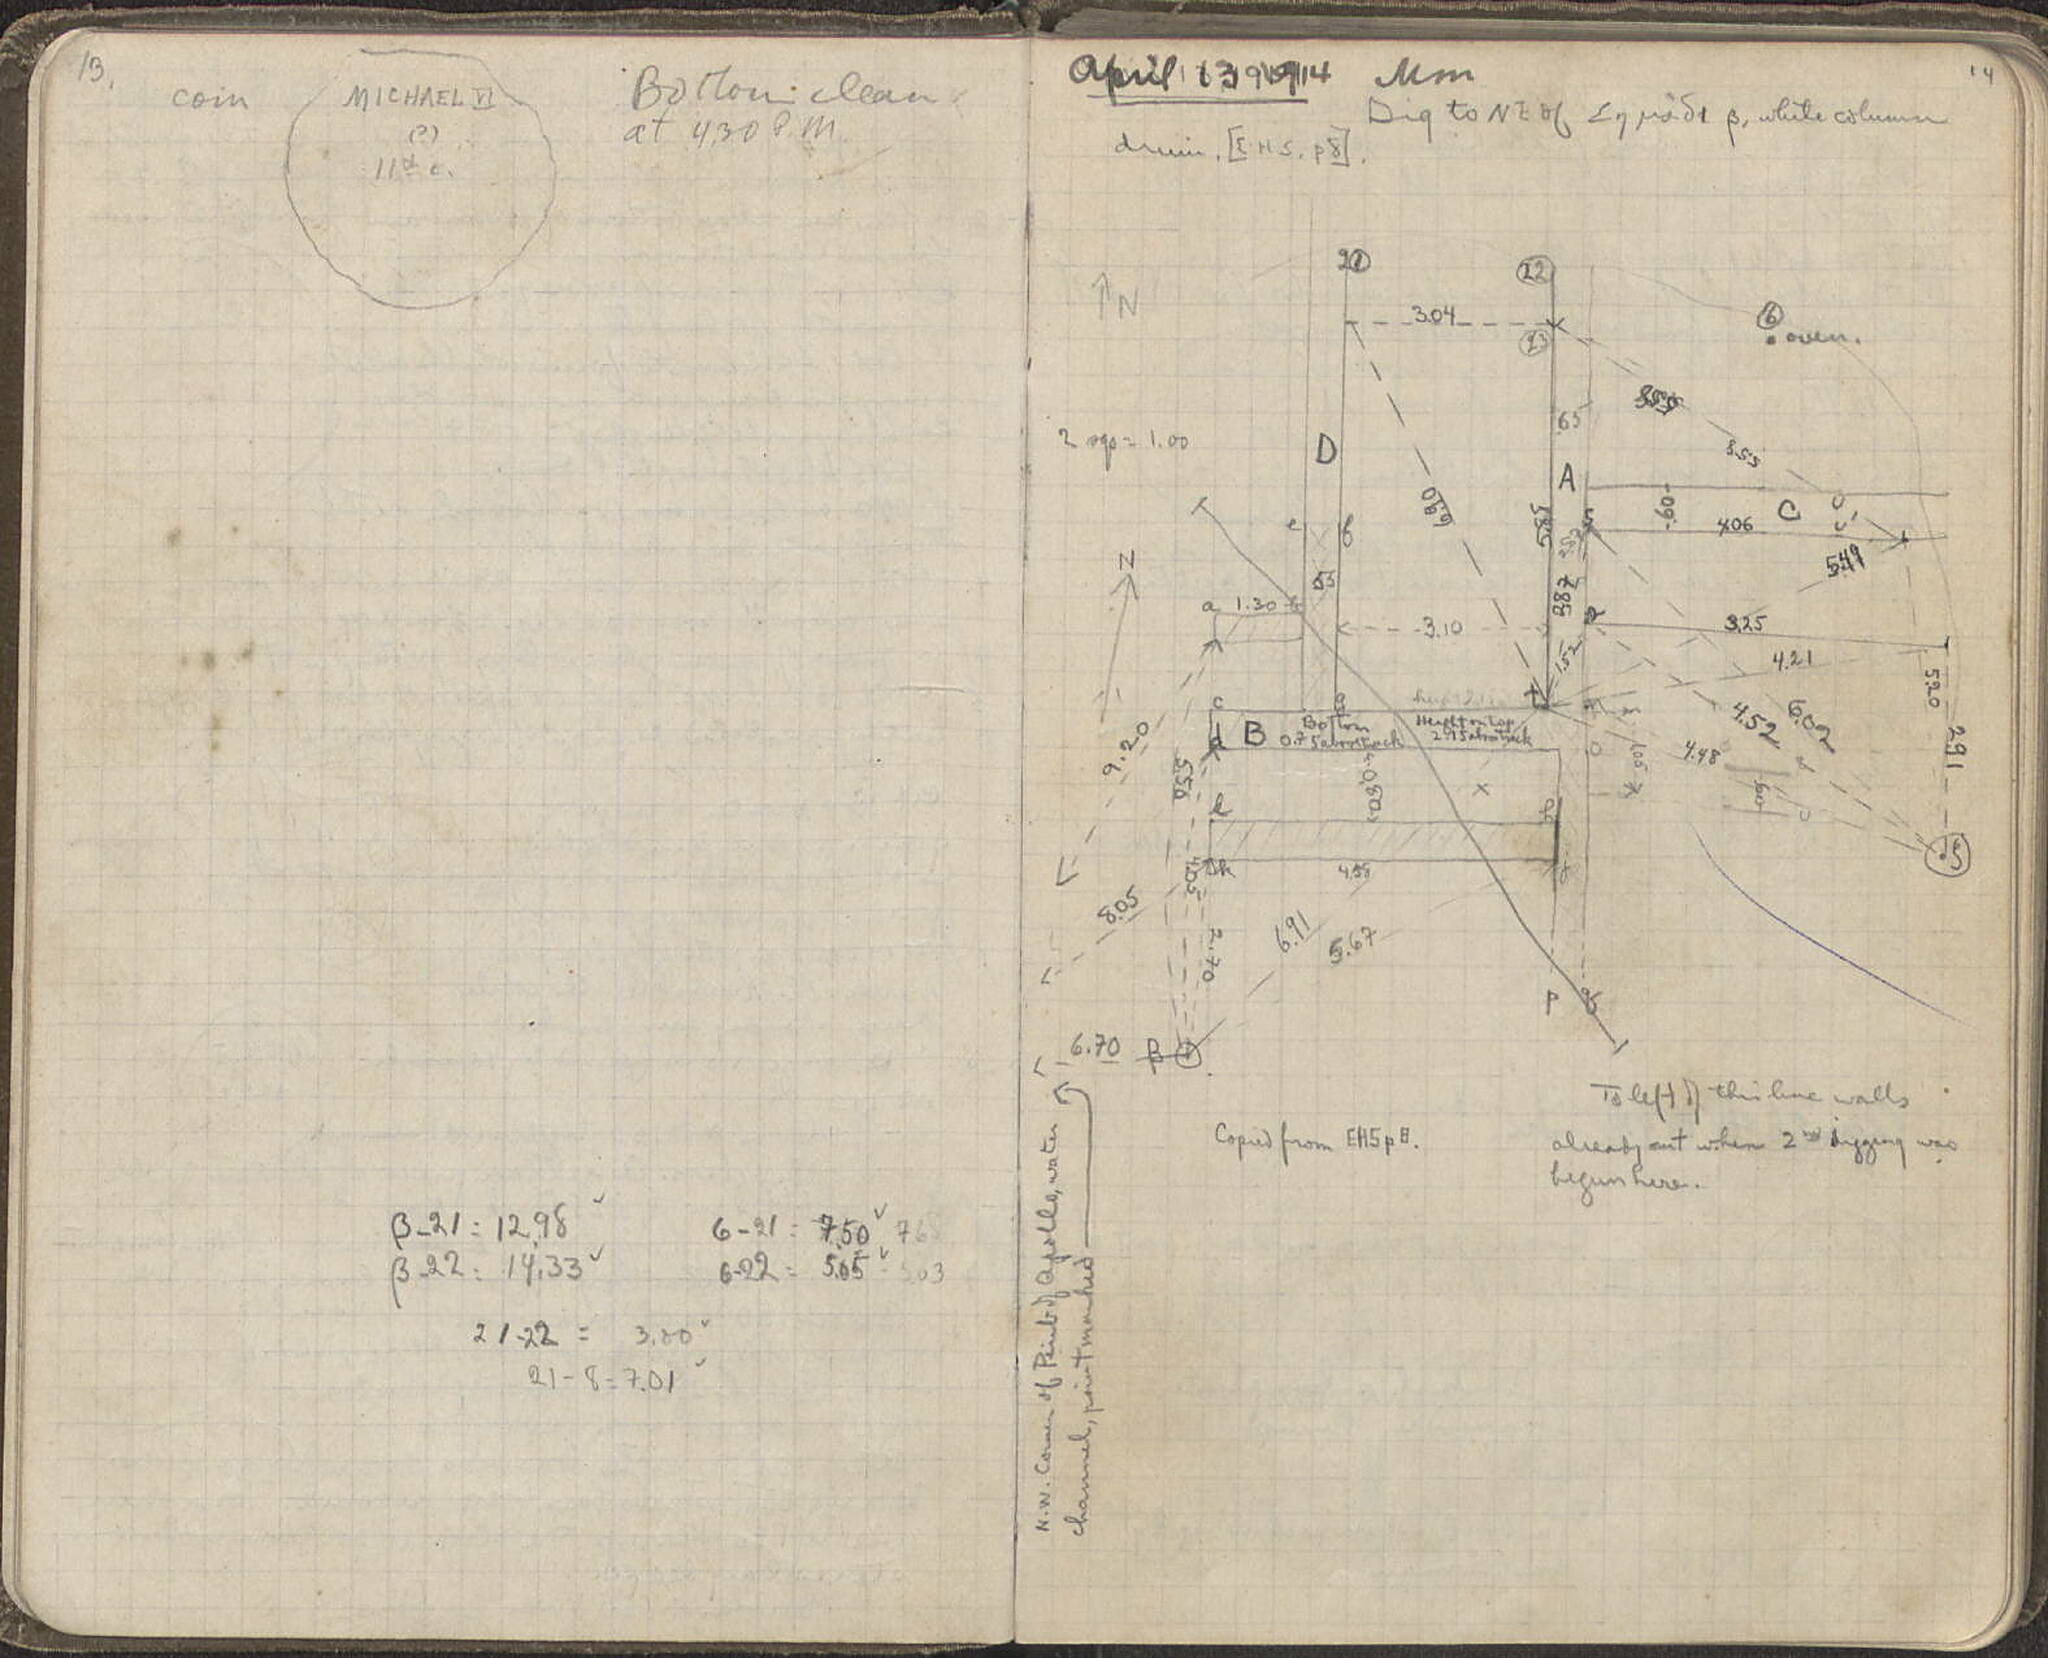 13.
coin
MICHAEL VI
(?)
11th c.
Bottom clean
at 4.30 P.M.
β-21 = 12.98
β-22 = 14.33
6-21 = 7.50
6-22 = 5.05
21-22 = 3.00
21-8 = 7.01
14
April 13 1914 Mon
Dig to NE of Σημάδι β, white column
drum. [EHS. p8].
N
21
22
6
oven.
3.04
23
.65
2 sqs = 1.00
D
8.55
A
C
.60
4.06
5.49
6.80
5.85
3.87
e
f
.55
N
a
1.30
3.10
3.25
1.52
4.21
5.20
2.91
c
B
Bottom
Height on top
t
4.52
6.02
4.48
.60
9.20
5.50
k
4.03
4.55
8.05
2.70
6.91
5.67
P
6.70
β
To left of this line walls
already out when 2nd digging was
begun here.
Copied from EHS p 8.
N.W. Corner of Perib. of Apollo, water
channel, point marked